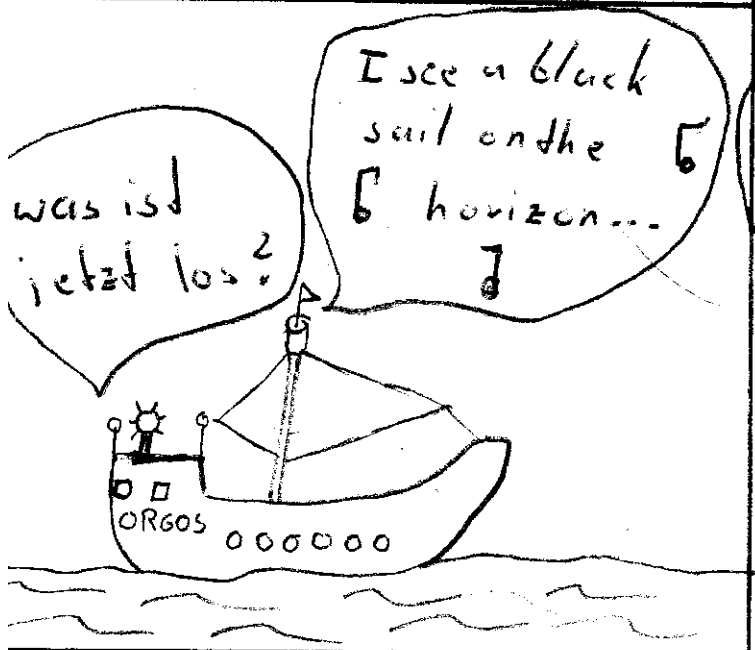 was ist
jetzt los?
I see a black
sail on the
horizon...
ORGOS